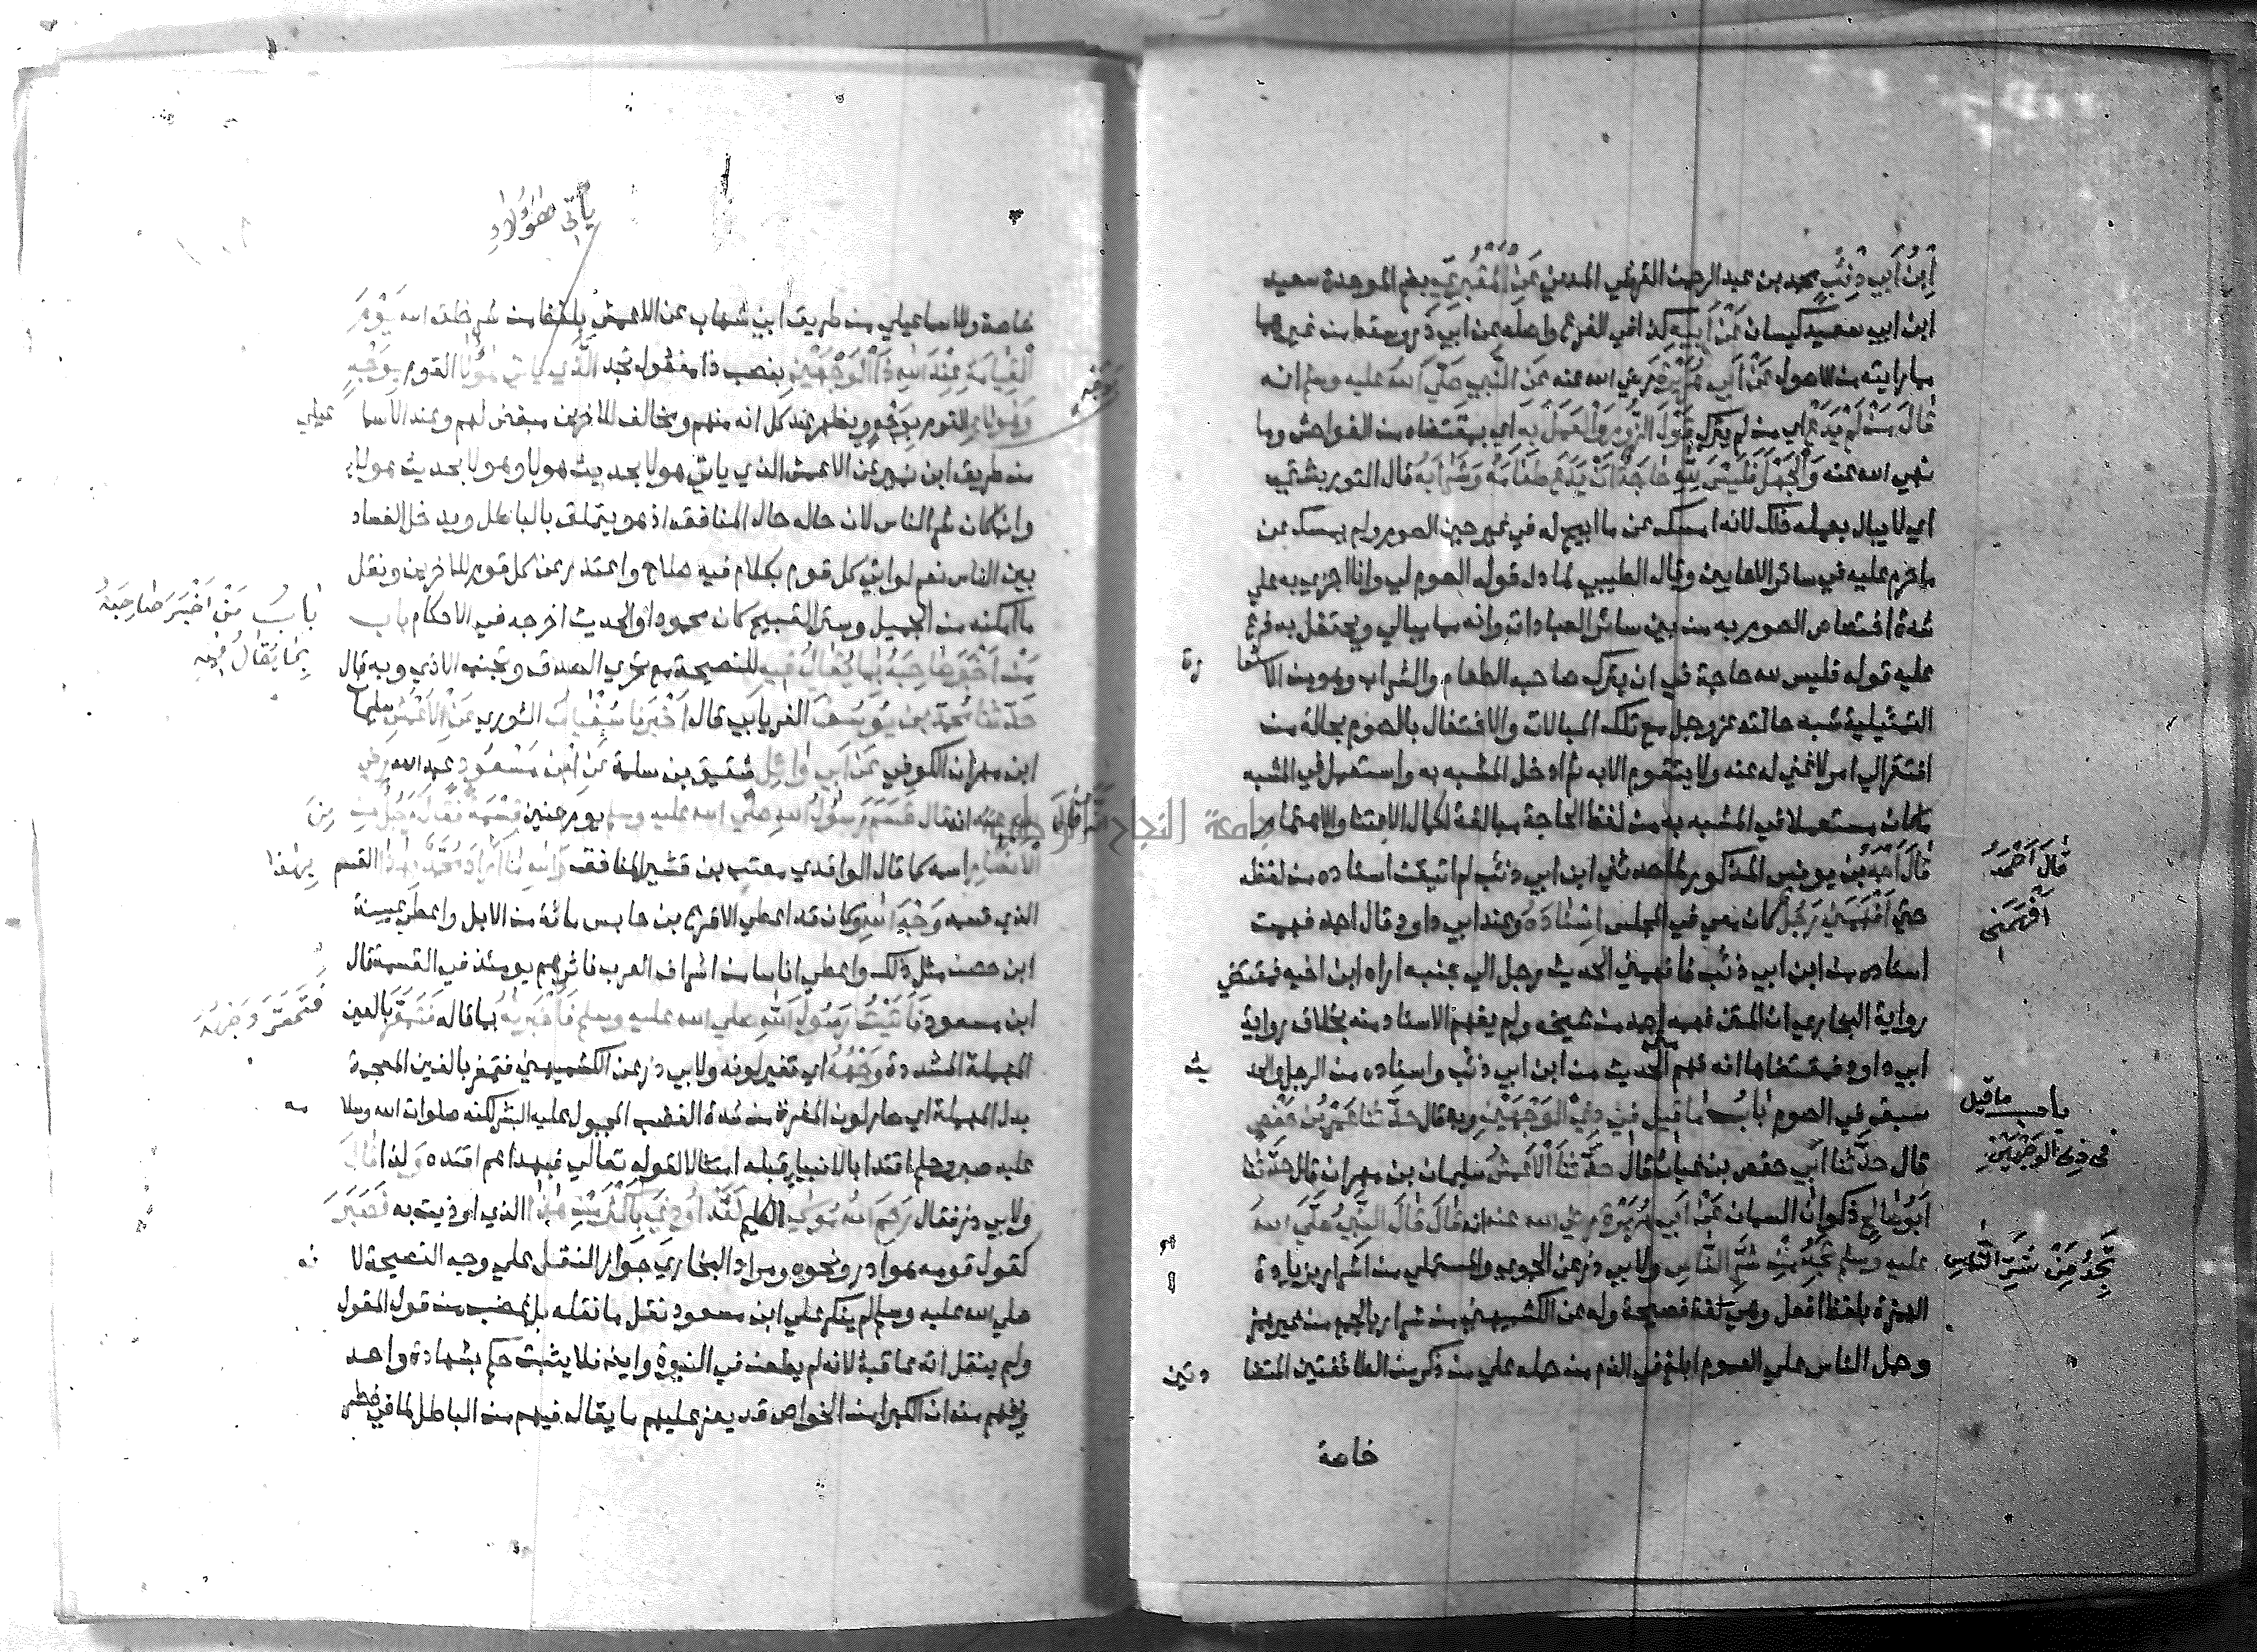 اِبْنُ اَبِي ذِئْبٍ محمد بن عبد الرحمن القرشي المدني عَنِ الْمَقْبُرِيِّ بضم الموحدة سعيد
ابن ابي سعيد كيسان عَنْ اَبِيهِ كذا في الفرع واصله عن ابي ذر وسقط من غيرهما
مما رايته من الاصول عَنْ اَبِي هُرَيْرَةَ رضي الله عنه عَنِ النَّبِي صَلَّي اللهُ عليه وسلم انه
قَالَ مَنْ لَمْ يَدَعْ اي من لم يترك قَوْلَ الزُّورِ وَالْعَمَلَ بِهِ اي بمقتضاه من الفواحش وما
نهي الله عنه وَالْجَهْلَ فَلَيْسَ لِلَّهِ حَاجَةٌ اَنْ يَدَعَ طَعَامَهُ وَشَرَابَهُ قال التوربشتي
اي لا يبال بعمله ذلك لانه امسك عن ما ابيح له في غير حين الصوم ولم يمسك عن
ما حرم عليه في سائر الاحايين وقال الطيبي لما دل قوله الصوم لي وانا اجزي به علي
شدة اختصاص الصوم به من بين سائر العبادات وانه مما يبالي ويحتفل به فرع
عليه قوله فليس لله حاجة في ان يترك صاحبه الطعام والشراب وهو من الاستعا رة
التمثيلية شبه حالته عز وجل مع تلك المبالات والاحتفال بالصوم بحالة من
افتقر الي امر لا غني له عنه ولا يتقوم الا به ثم ادخل المشبه به واستعمل في المشبه
ما كان مستعملا في المشبه به من لفظ الحاجة مبالغة لكمال الاعتنا والاهتمام
قَالَ اَحْمَدُ بن يونس المذكور لما حدثني ابن ابي ذئب لم اتيقن اسناده من لفظه
حتي اَفْهَمَنِي رَجُلٌ كان معي في المجلس اِسْنَادَهُ وعند ابي داود قال احمد فهمت
اسناده من ابن ابي ذئب فافهمني الحديث رجل الي جنبه اراه ابن اخيه فمقتضي
رواية البخاري ان المتن فهمه احمد من شيخه ولم يفهم الاسناد منه بخلاف رواية
ابي داود فمقتضاها انه فهم الحديث من ابن ابي ذئب واسناده من الرجل والحد يث
سبق في الصوم بَابُ مَا قِيلَ فِي ذِي الْوَجْهَيْنِ وبه قال حَدَّثَنَا عُمَرُ بْنُ حَفْصٍ
قال حَدَّثَنَا اَبِي حفص بن غياث قَالَ حَدَّثَنَا الْاَعْمَشُ سليمان بن مهران قال حَدَّثَنَا
اَبُو صَالِحٍ ذكوان السمان عَنْ اَبِي هُرَيْرَةَ رضي الله عنه انه قَالَ قَالَ النَّبِيُّ صَلَّي اللهُ
عليه وسلم تَجِدُ مِنْ شَرِّ النَّاسِ ولابي ذر عن الحموي والمستملي من اشر بزيادة
الهمزة بلفظ افعل وهي لغة فصيحة وله عن الكشميهني من شرار بالجمع من غير همز
وحمل الناس علي العموم ابلغ في الذم من حمله علي من ذكر من الطائفتين المتضا دتين
خاصة
قَالَ اَحْمَدُ
اَفْهَمَنِي
باب ما قيل
في ذي الوَجْهَيْنِ
تَجِدُ مِنْ شَرِّ النَّاسِ
يَأتِي هَؤُلَاءِ
خاصة وللاسماعيلي من طريق ابن شهاب عن الاعمش بلفظ من شر خلق الله يَوْمَ
الْقِيَامَةِ عِنْدَ اللهِ ذَا الْوَجْهَيْنِ بنصب ذا مفعول تجد الَّذِي يأتي هَؤُلَاءِ القوم بِوَجْهٍ
وَهَؤُلَاءِ القوم بِوَجْهٍ ويظهر عند كل انه منهم ومخالف للاخرين مبغض لهم وعند الاسما عيلي
من طريق ابن نمير عن الاعمش الذي ياتي هولا بحديث هولا وهولا بحديث هولاء
وانما كان شر الناس لان حاله حال المنافق اذ هو يتملق بالباطل ويدخل الفساد
بين الناس نعم لو اتي كل قوم بكلام فيه صلاح واعتذر عن كل قوم للاخرين ونقل
ما امكنه من الجميل وستر القبيح كان محمودا والحديث اخرجه في الاحكام باب
مَنْ اَخْبَرَ صَاحِبَهُ بِمَا يُقَالُ فِيهِ للنصيحة مع تحري الصدق وتجنب الاذي وبه قال
حَدَّثَنَا مُحَمَّدُ بن يُوسُفَ الفريابي قال اَخْبَرَنَا سُفْيَانُ الثوري عَنِ الْاَعْمَشِ سليمان
ابن مهران الكوفي عَنْ اَبِي وَائِلٍ شقيق بن سلمة عَنِ ابْنِ مَسْعُودٍ عبد الله رضي
الله عنه انه قال قَسَمَ رَسُولُ اللهِ صلي الله عليه وسلم يوم حنين قِسْمَةً فَقَالَ رَجُلٌ مِنَ
الْاَنْصَارِ اسمه كما قال الواقدي معتب بن قشير المنافق وَاللهِ مَا اَرَادَ مُحَمَّدٌ بِهَذَا القسم
الذي قسمه وَجْهَ اللهِ وكان قد اعطي الاقرع بن حابس مائة من الابل واعطي عيينة
ابن حصن مثل ذلك واعطي اناسا من اشراف العرب فاثرهم يومئذ في القسمة قال
ابن مسعود فَاَتَيْتُ رَسُولَ اللهِ صلي الله عليه وسلم فَاَخْبَرْتُهُ بما قاله فَتَمَعَّرَ بالعين
المهملة المشددة وَجْهُهُ اي تغير لونه ولابي ذر عن الكشميهني فتمغر بالغين المعجمة
بدل المهملة اي صار لون المغرة من شدة الغضب المجبول عليه البشر لكنه صلوات الله وسلا مه
عليه صبر وحلم اقتدا بالانبياء قبله امتثالا لقوله تعالي فبهداهم اقتده وَلِذا قَالَ
ولابي ذر فقال رَحِمَ اللهُ مُوسَي الكليم لَقَدْ اُوذِيَ بِاَكْثَرَ مِنْ هَذَا الذي اوذيت به فَصَبَرَ
كقول قومه هو ادر ونحوه ومراد البخاري جواز النقل علي وجه النصيحة لا نه
صلي الله عليه وسلم لم ينكر علي ابن مسعود نقل ما نقله بل غضب من قول المقول
ولم ينقل انه عاقبه لانه لم يطعن في النبوة وايضا فلا يثبت حكم بشهادة واحد
ويفهم منه ان الكبرا من الخواص قد يعز عليهم ما يقال فيهم من الباطل لما في فطر
بابُ مَنْ اَخْبَرَ صَاحِبَهُ
بِمَا يُقَالُ فِيهِ
بِهَذَا
فَتَمَعَّرَ وَجْهُهُ
جامعة النجاح الوطنية